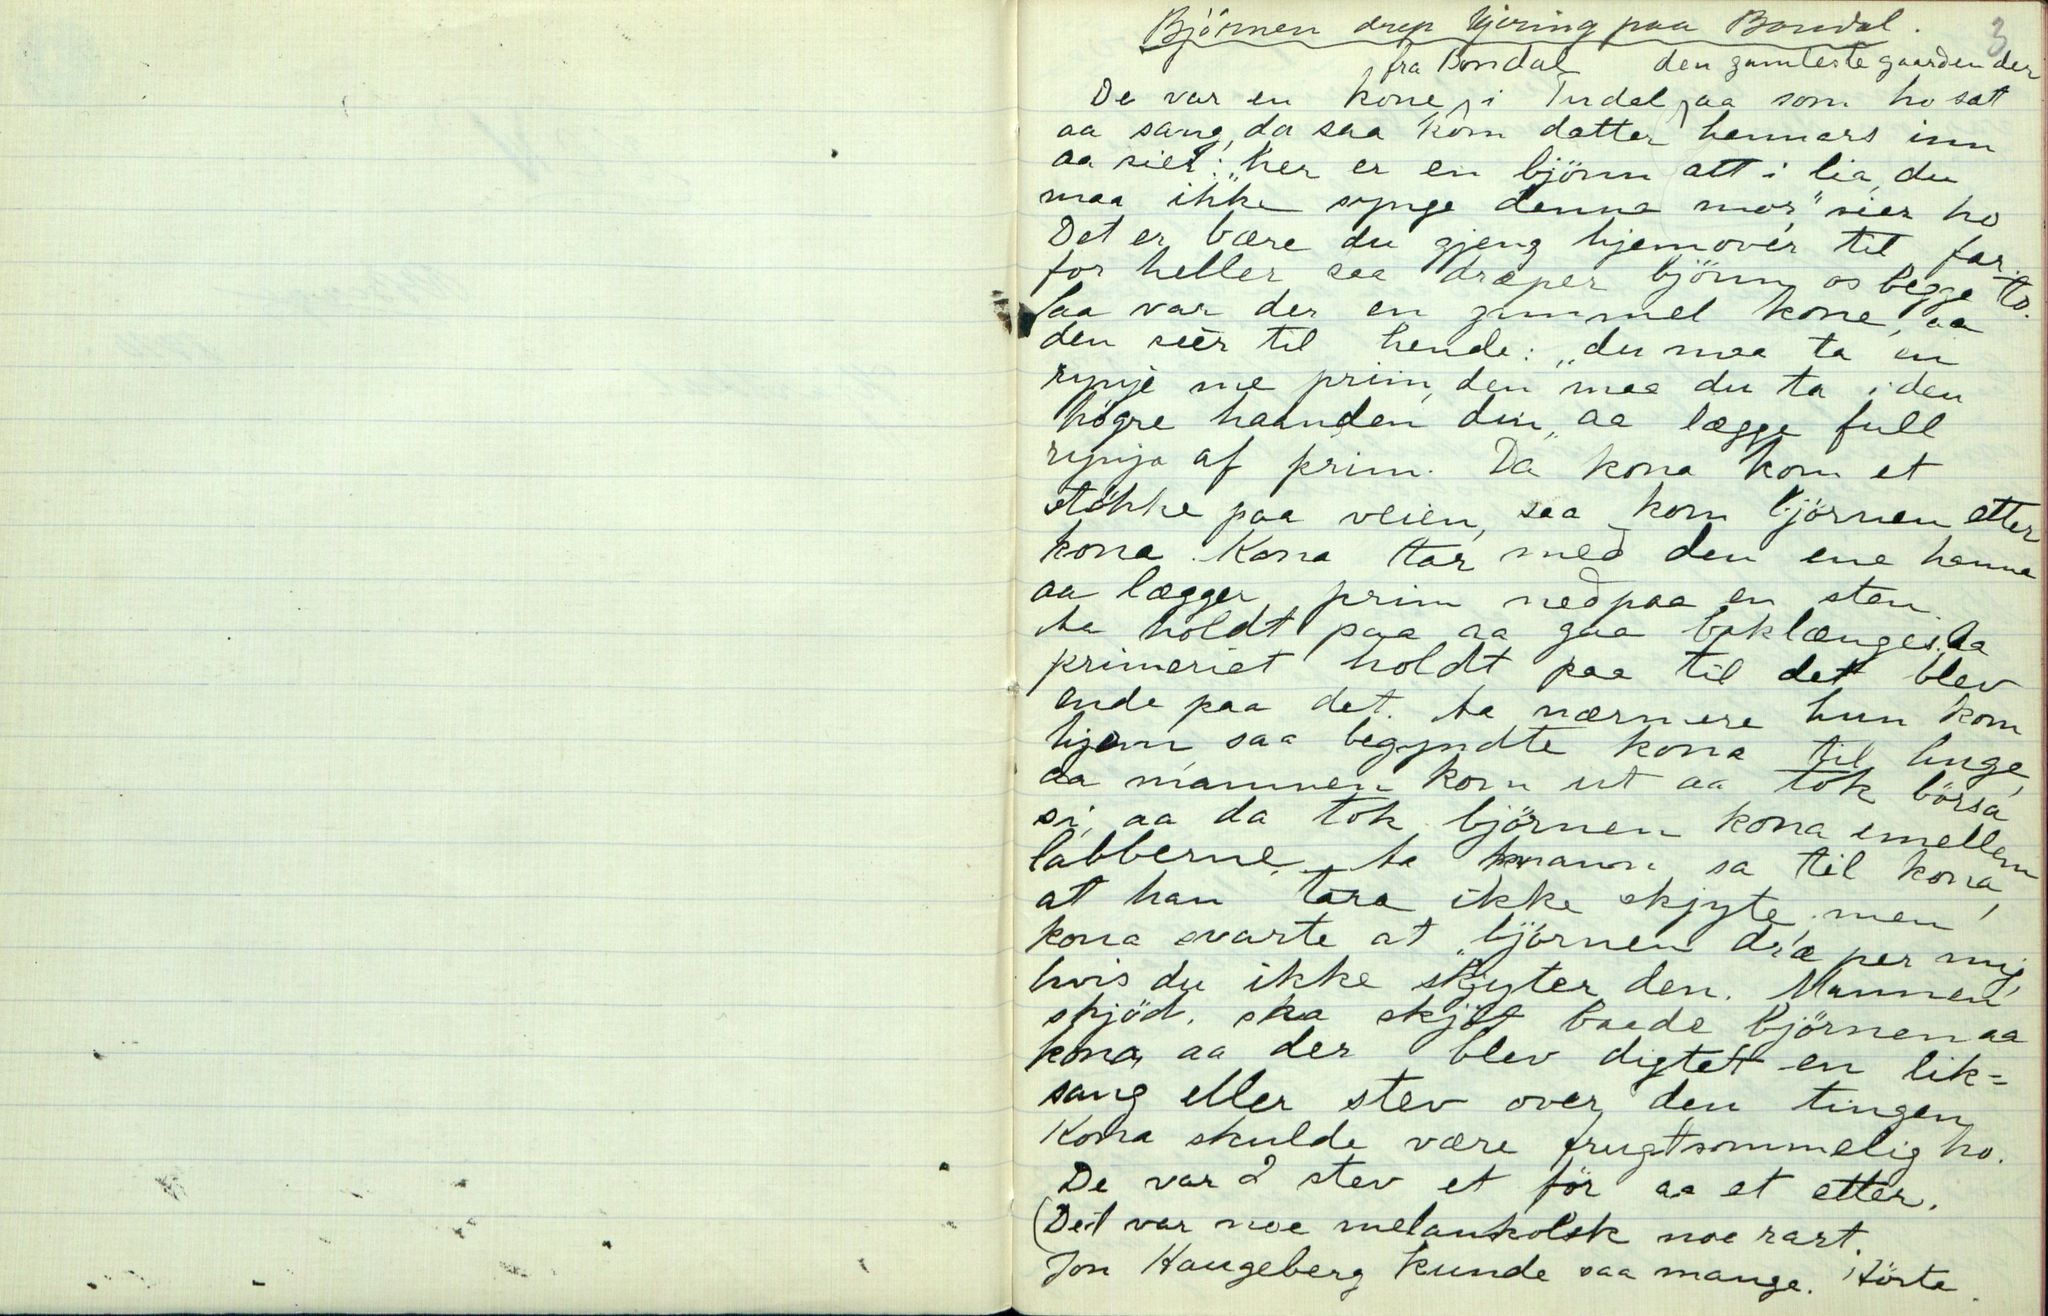 Björnen drep kjæring paa Bondal.
3
fra Bondal den gamleste gaarden der
De var en kone i Tudal aa som ho sat
aa sang, da saa kom datter hennars inn
aa sier: "her er en björnn att i lia, du
maa ikke synge denna mor," sier ho
Det er bære du gjeng hjemover til far.
for heller saa dræper björnn os begge to.
Saa var der en gammel kone, aa
den sier til hende: "du maa ta ei
rypje me prim, den maa du ta i den
högre haanden din," aa lægge full
rypja af prim. Da kona kom et
stökke paa veien, saa kom björnen etter
kona. Kona tar med den ene hanna
aa lægger prim ned paa en sten
Aa holdt paa aa gaa baklænges. Aa
primeriet holdt paa til det blev
ende paa det. Aa nærmere hun kom
hjem saa begyndte kona til huge,
aa mannen kom ut aa tok börsa
si, aa da tok björnen kona imellem
labberne. Aa mann sa til kona,
at han tora ikke skjyte, men
kona svarte at "björnen dræper mig,
hvis du ikke skjyter den. Mannen
skjöd, ska skjöt baade björnen aa
kona, aa der blev digtet en lik=
sang eller stev over den tingen
Kona skulde være frugtsommelig ho.
De var 2 stev et för aa et etter.
(Det var noe melankolsk noe rart
Jon Haugeberg kunde saa mange. Hörte